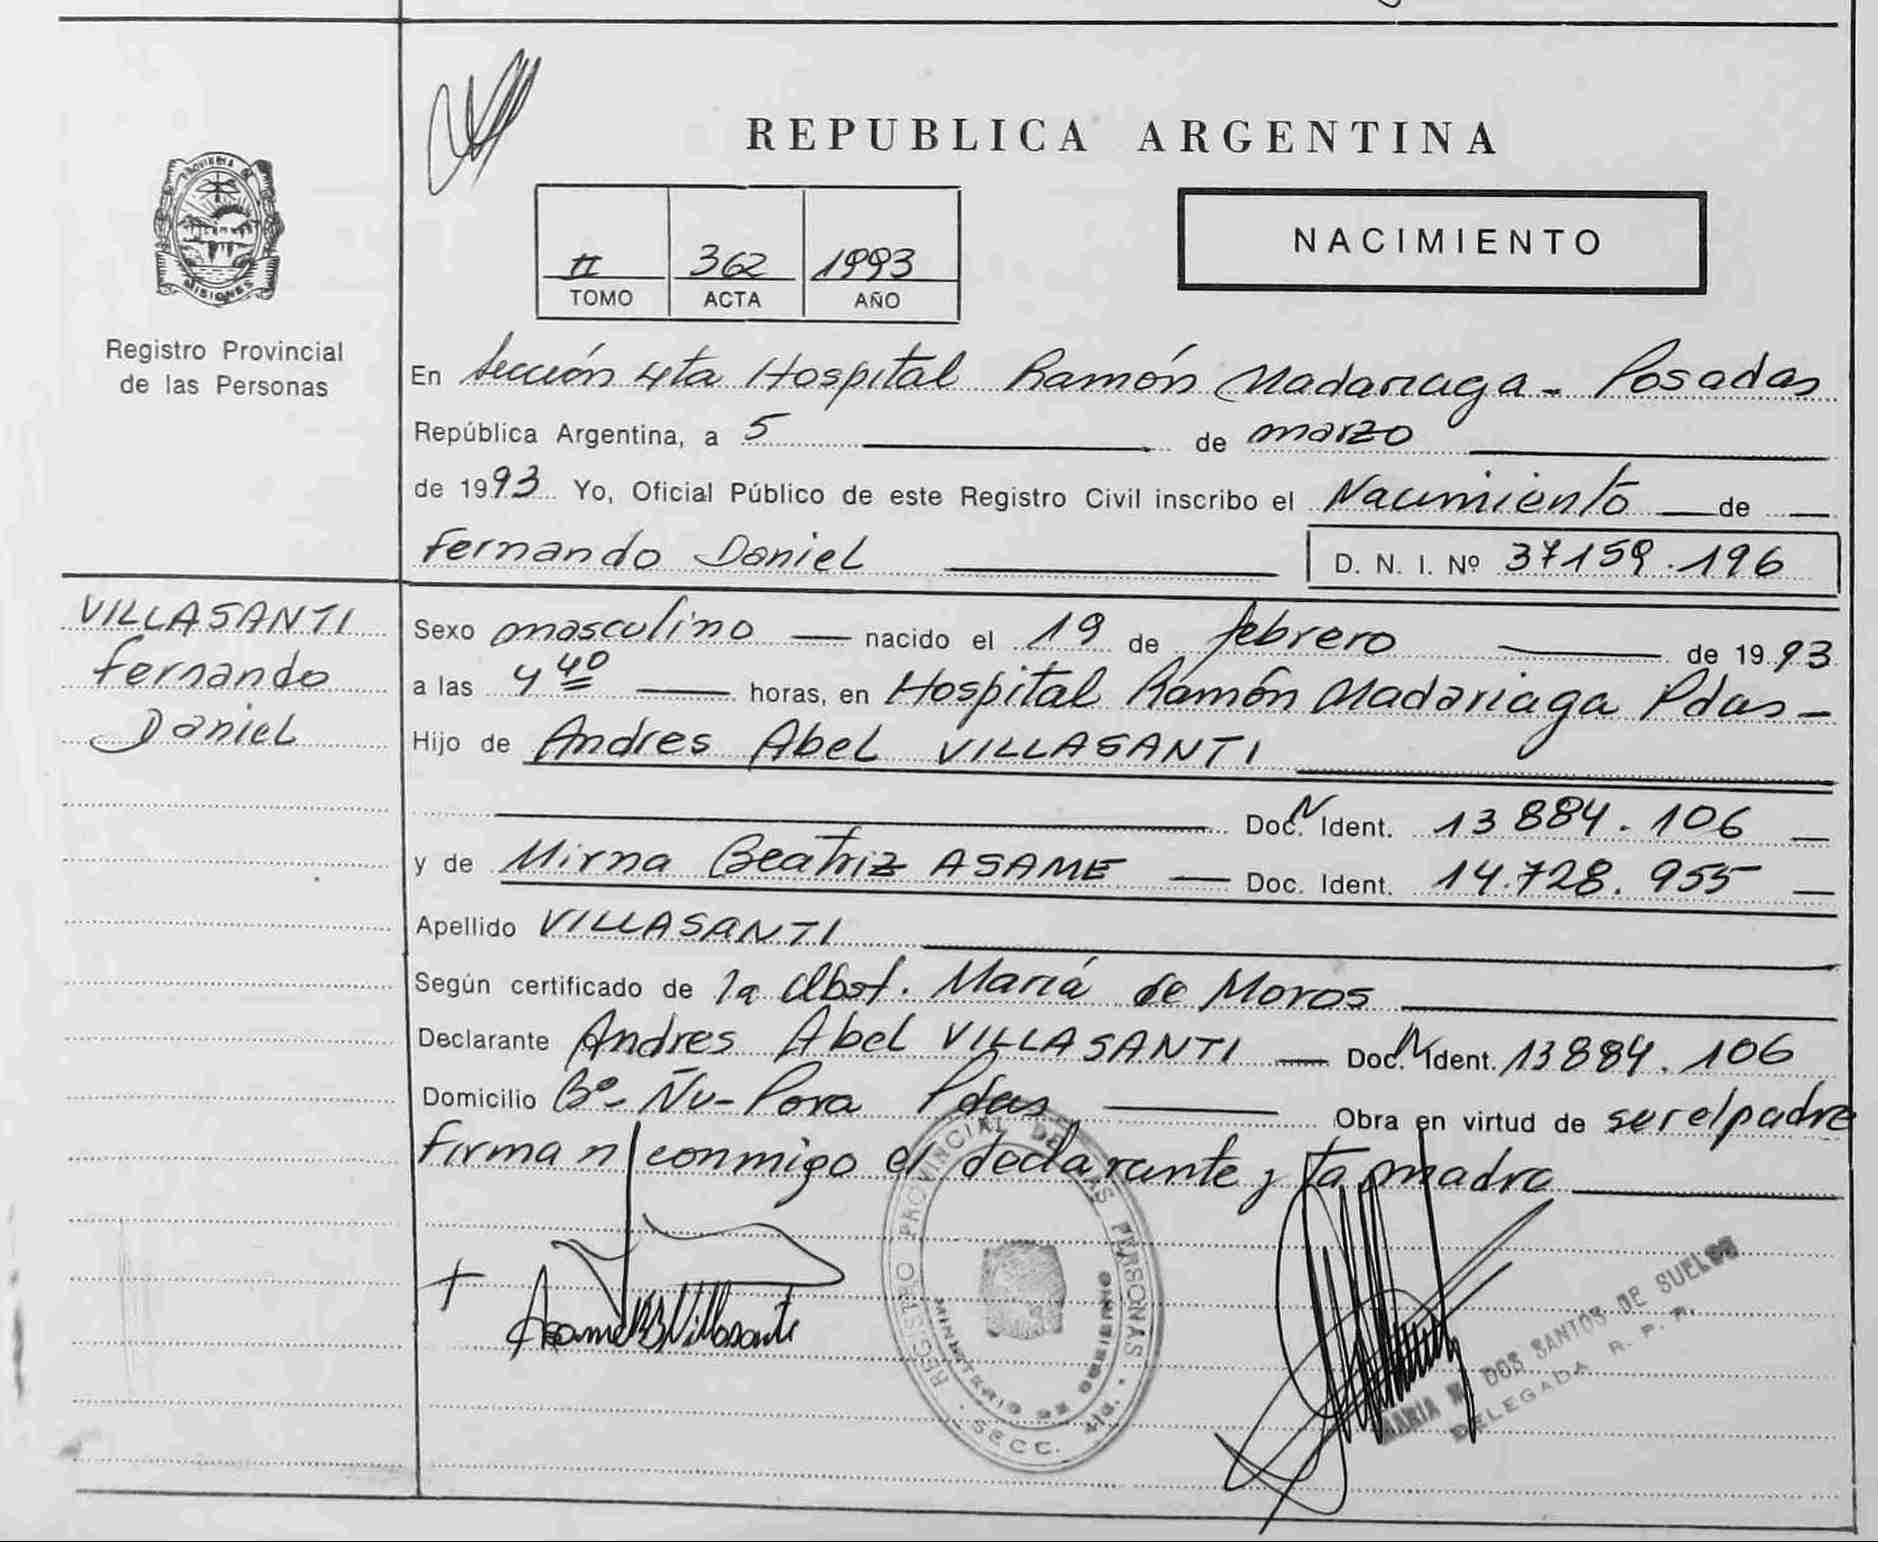 REPUBLICA ARGENTINA
PROVINCIA DE
MISIONES
Registro Provincial
de las Personas
II 362 1993
TOMO ACTA AÑO
NACIMIENTO
En Sección 4ta Hospital Ramón Madariaga - Posadas
República Argentina, a 5 de marzo
de 1993 Yo, Oficial Público de este Registro Civil inscribo el Nacimiento de
Fernando Daniel D. N. I. Nº 37159.196
VILLASANTI
Fernando
Daniel
Sexo masculino nacido el 19 de febrero de 1993
a las 4 40 horas, en Hospital Ramón Madariaga Pdas-
Hijo de Andres Abel VILLASANTI
Doc. N Ident. 13884.106
y de Mirna Beatriz ASAME Doc. Ident. 14.728.955
Apellido VILLASANTI
Según certificado de la Obst. María de Moros
Declarante Andres Abel VILLASANTI Doc. N Ident. 13884.106
Domicilio Bº- Ñu-Pora Pdas Obra en virtud de ser el padre
firman conmigo el declarante y la madre
REGISTRO PROVINCIAL DE LAS PERSONAS
MINISTERIO DE GOBIERNO
SECC. 4ta.
Asame B Villasanti
MARIA DOS SANTOS DE SUELOS
DELEGADA R. P. P.